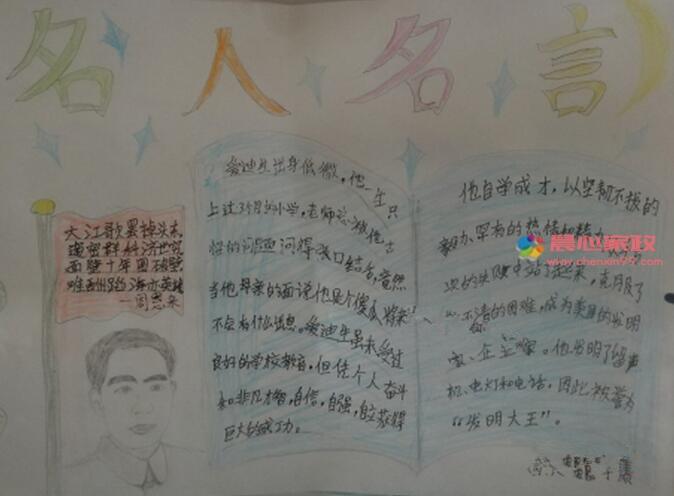 名人名言
大江歌罢掉头东
邃密群科济世穷
面壁十年图破壁
难酬蹈海亦英雄
—周恩来
爱迪生出身低微，他一生只
上过3个月的小学，老师总被他古
怪的问题问得张口结舌，竟然
当他母亲的面说他是个傻瓜，将来
不会有什么出息。爱迪生虽未受过
良好的学校教育，但凭个人奋斗
和非凡才智，自信，自强，自立获得
巨大的成功。
他自学成才，以坚韧不拔的
毅力、罕有的热情和精力
次的失败中站了起来，克服了
不清的困难，成为美国的发明
家、企业家。他发明了留声
机、电灯和电话，因此被誉为
“发明大王”。
晨心家政
www.chenxin99.com